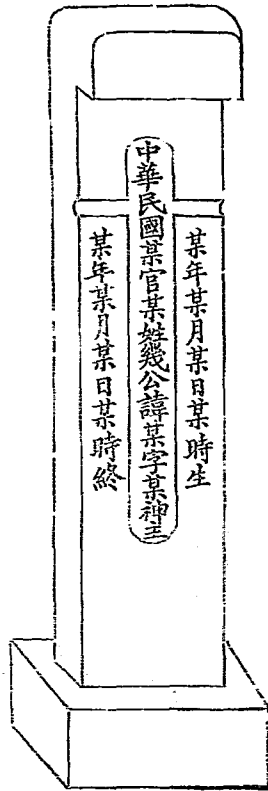 某年某月某日某時生
中華民國某官某姓幾公諱某字某神主
某年某月某日某時終